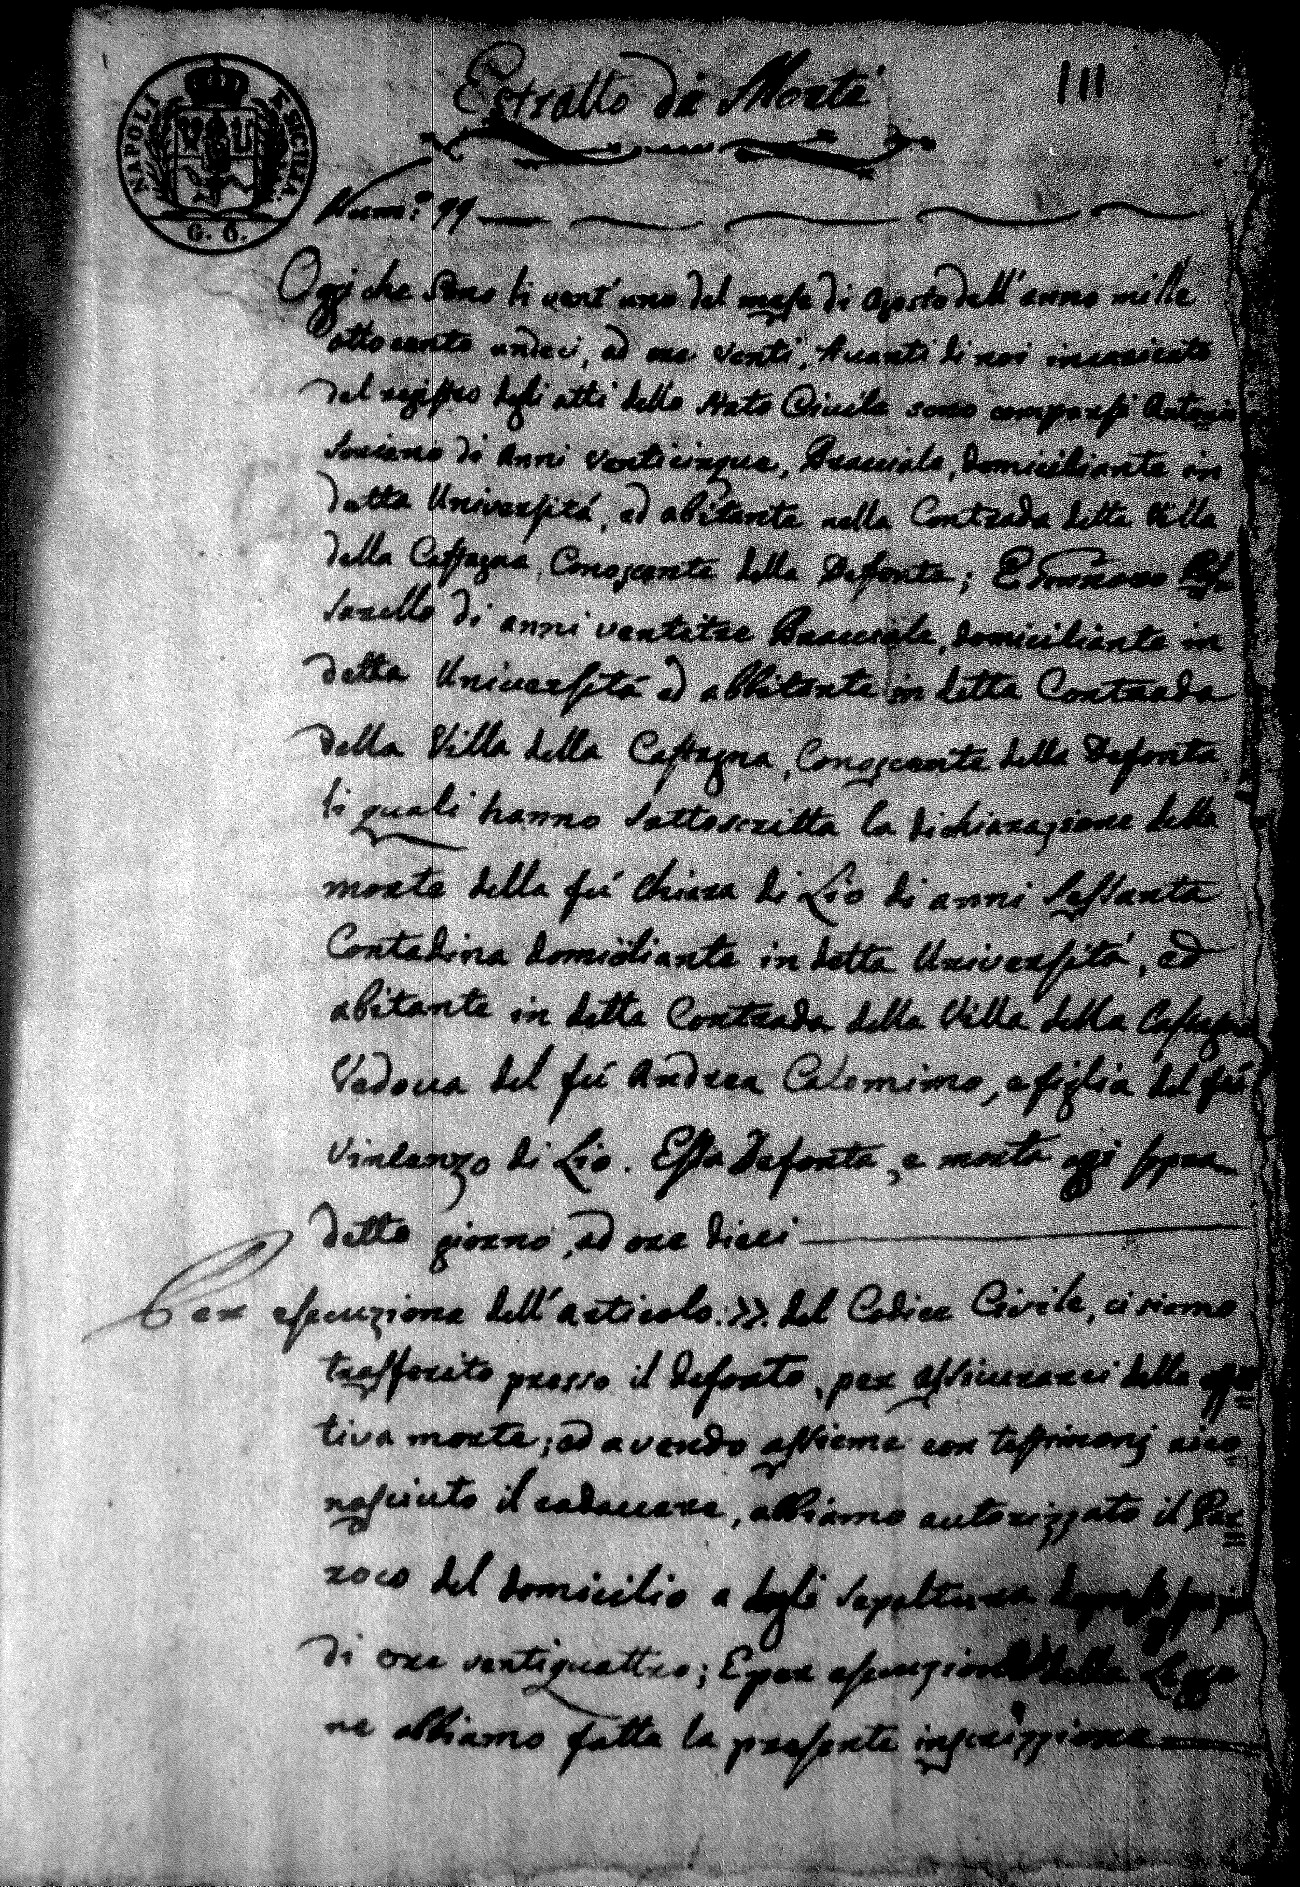 Estratto di Morte
111
NAPOLI E SICILIA.
G. 6.
Num.º 99
Oggi che sono li vent'uno del mese di Agosto dell'anno mille
ottocento undeci, ad ore venti, Avanti di noi incaricato
del registro degli atti dello Stato Civile sono comparsi Antonio
Soriano di Anni venticinque, Bracciale, domiciliante in
detta Università, ed abitante nella Contrada detta Villa
della Castagna, Conoscente della Defonta; E Tommaso
di anni ventitre Bracciale, domiciliante in
detta Università ed abbitante in detta Contrada
della Villa della Castagna, Conoscente della Defonta,
li quali hanno sottoscritta la dichiarazione della
morte della fù Chiara di Lio di anni sessanta
Contadina domiciliante in detta Università, ed
abitante in detta Contrada della Villa della Castagna
Vedova del fù Andrea Colomimo, e figlia del fù
Vincenzo di Lio. Essa Defonta, e morta oggi sopra
detto giorno, ad ore dieci
Per esecuzione dell'articolo: 77. del Codice Civile, ci siamo
trasferito presso il defonto, per assicurarci della effe
tiva morte; ed avendo assieme con testimonj rico
nosciuto il cadavere, abbiamo autorizzato il Par
roco del domicilio a degli sepoltura
di ore ventiquattro; E per esecuzione della Legge
ne abbiamo fatta la presente inscrizzione